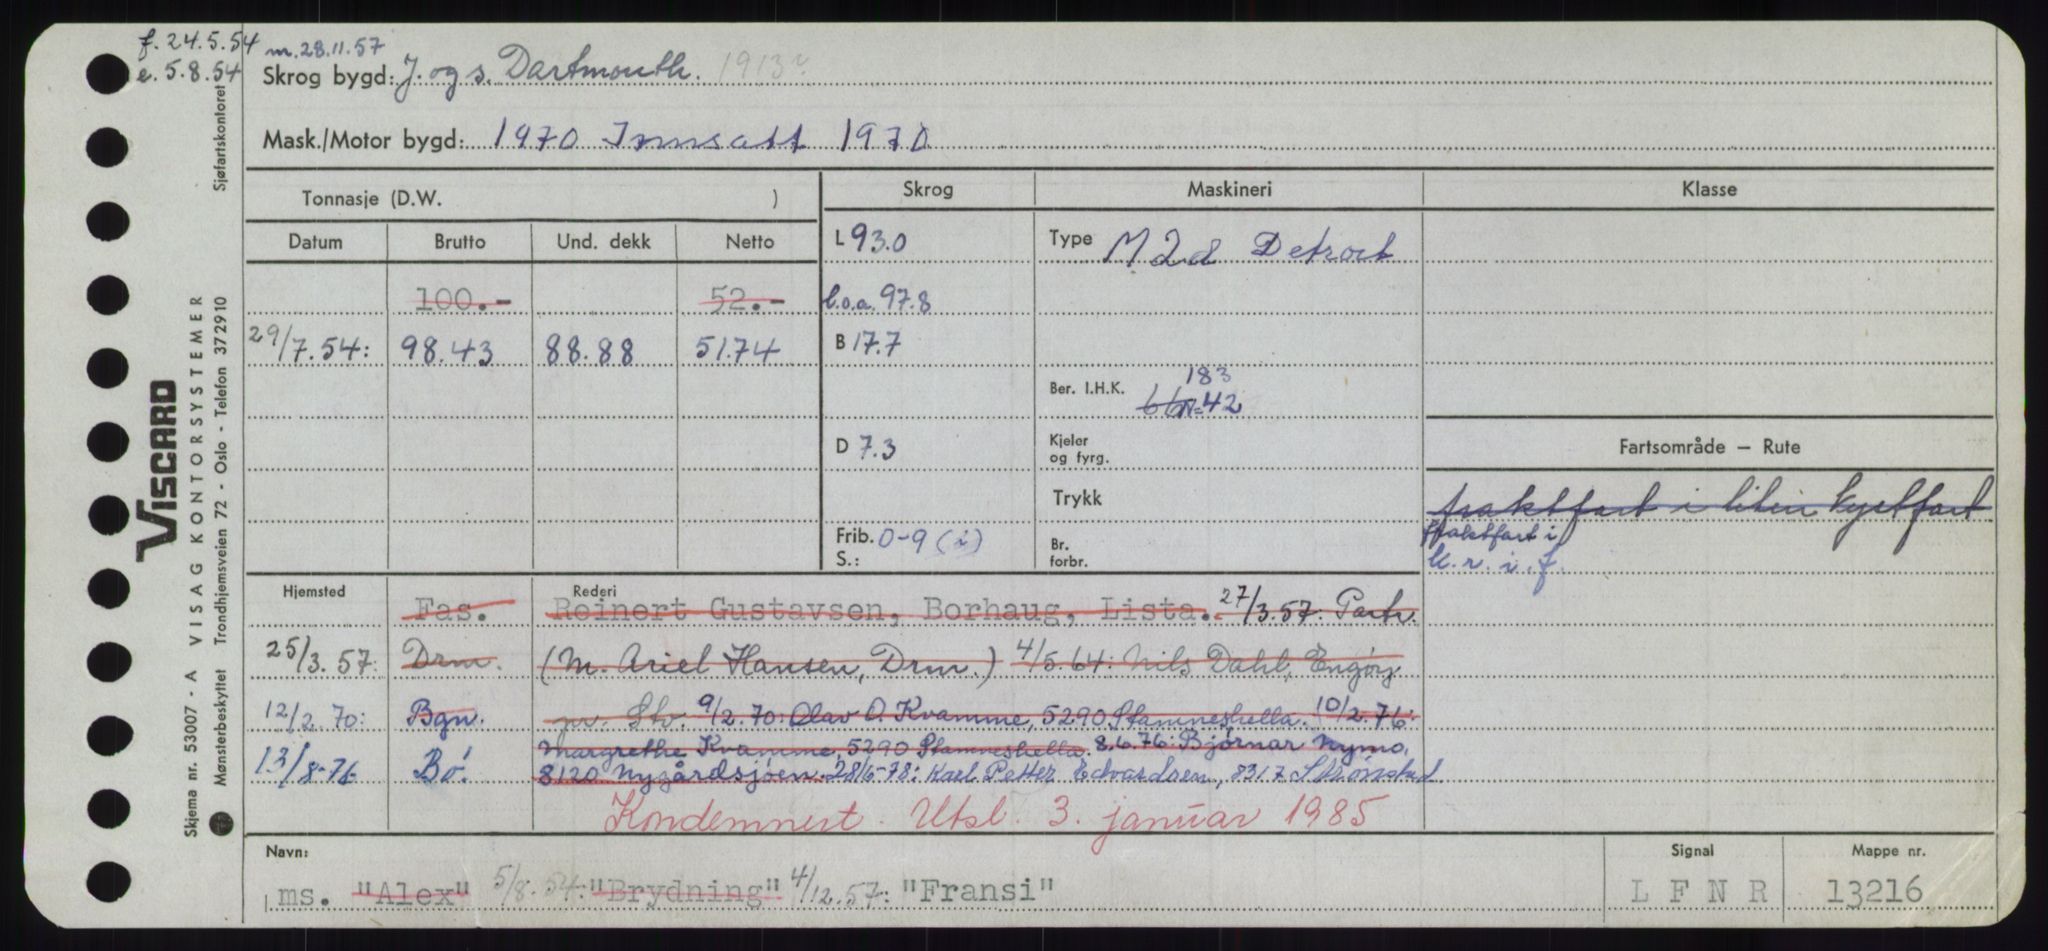 f. 24.5.54 m. 28.11.57
e. 5.8.54
Skrog bygd: J. og s. Dartmouth. 1913?
Mask./Motor bygd: 1970 Innsatt 1970
Tonnasje (D.W. ) Skrog Maskineri Klasse
Datum Brutto Und. dekk Netto L 93.0 Type M 2d Detroit
100.- 52.- l.o.a. 97.8
29/7.54: 98.43 88.88 51.74 B 17.7
183
Ber. I.H.K. N=42
D 7.3 Kjeler og fyrg. Fartsområde — Rute
Trykk fraktfart i liten kystfart
Frib. S.: 0-9 (i) Br. forbr. fraktfart i
k.r.i.f.
Hjemsted Rederi
Fas. Reinert Gustavsen, Borhaug, Lista. 27/3.57: Partr.
25/3.57: Drm. (M. Ariel Hansen, Drm.) 4/5.64: Nils Dahl, Engøy
12/2.70: Bgn. pr. Stv. 9/2.70: Olav O. Kvamme, 5290 Stamneshella. 10/2.76:
Margrethe Kvamme, 5290 Stamneshella. 8.6.76: Bjørnar Nymo,
13/8-76 Bø. 8120 Nygårdsjøen. 28/6-78: Karl Petter Edvardsen, 8317 Strønstad
Kondemnert. Utsl. 3. januar 1985
Navn: Signal Mappe nr.
ms. "Alex" 5/8.54: "Brydning" 4/12.57: "Fransi" L F N R 13216
VISCARD
Skjema nr. 53007 - A VISAG KONTORSYSTEMER
Mønsterbeskyttet Trondhjemsveien 72 - Oslo - Telefon 372910
Sjøfartskontoret